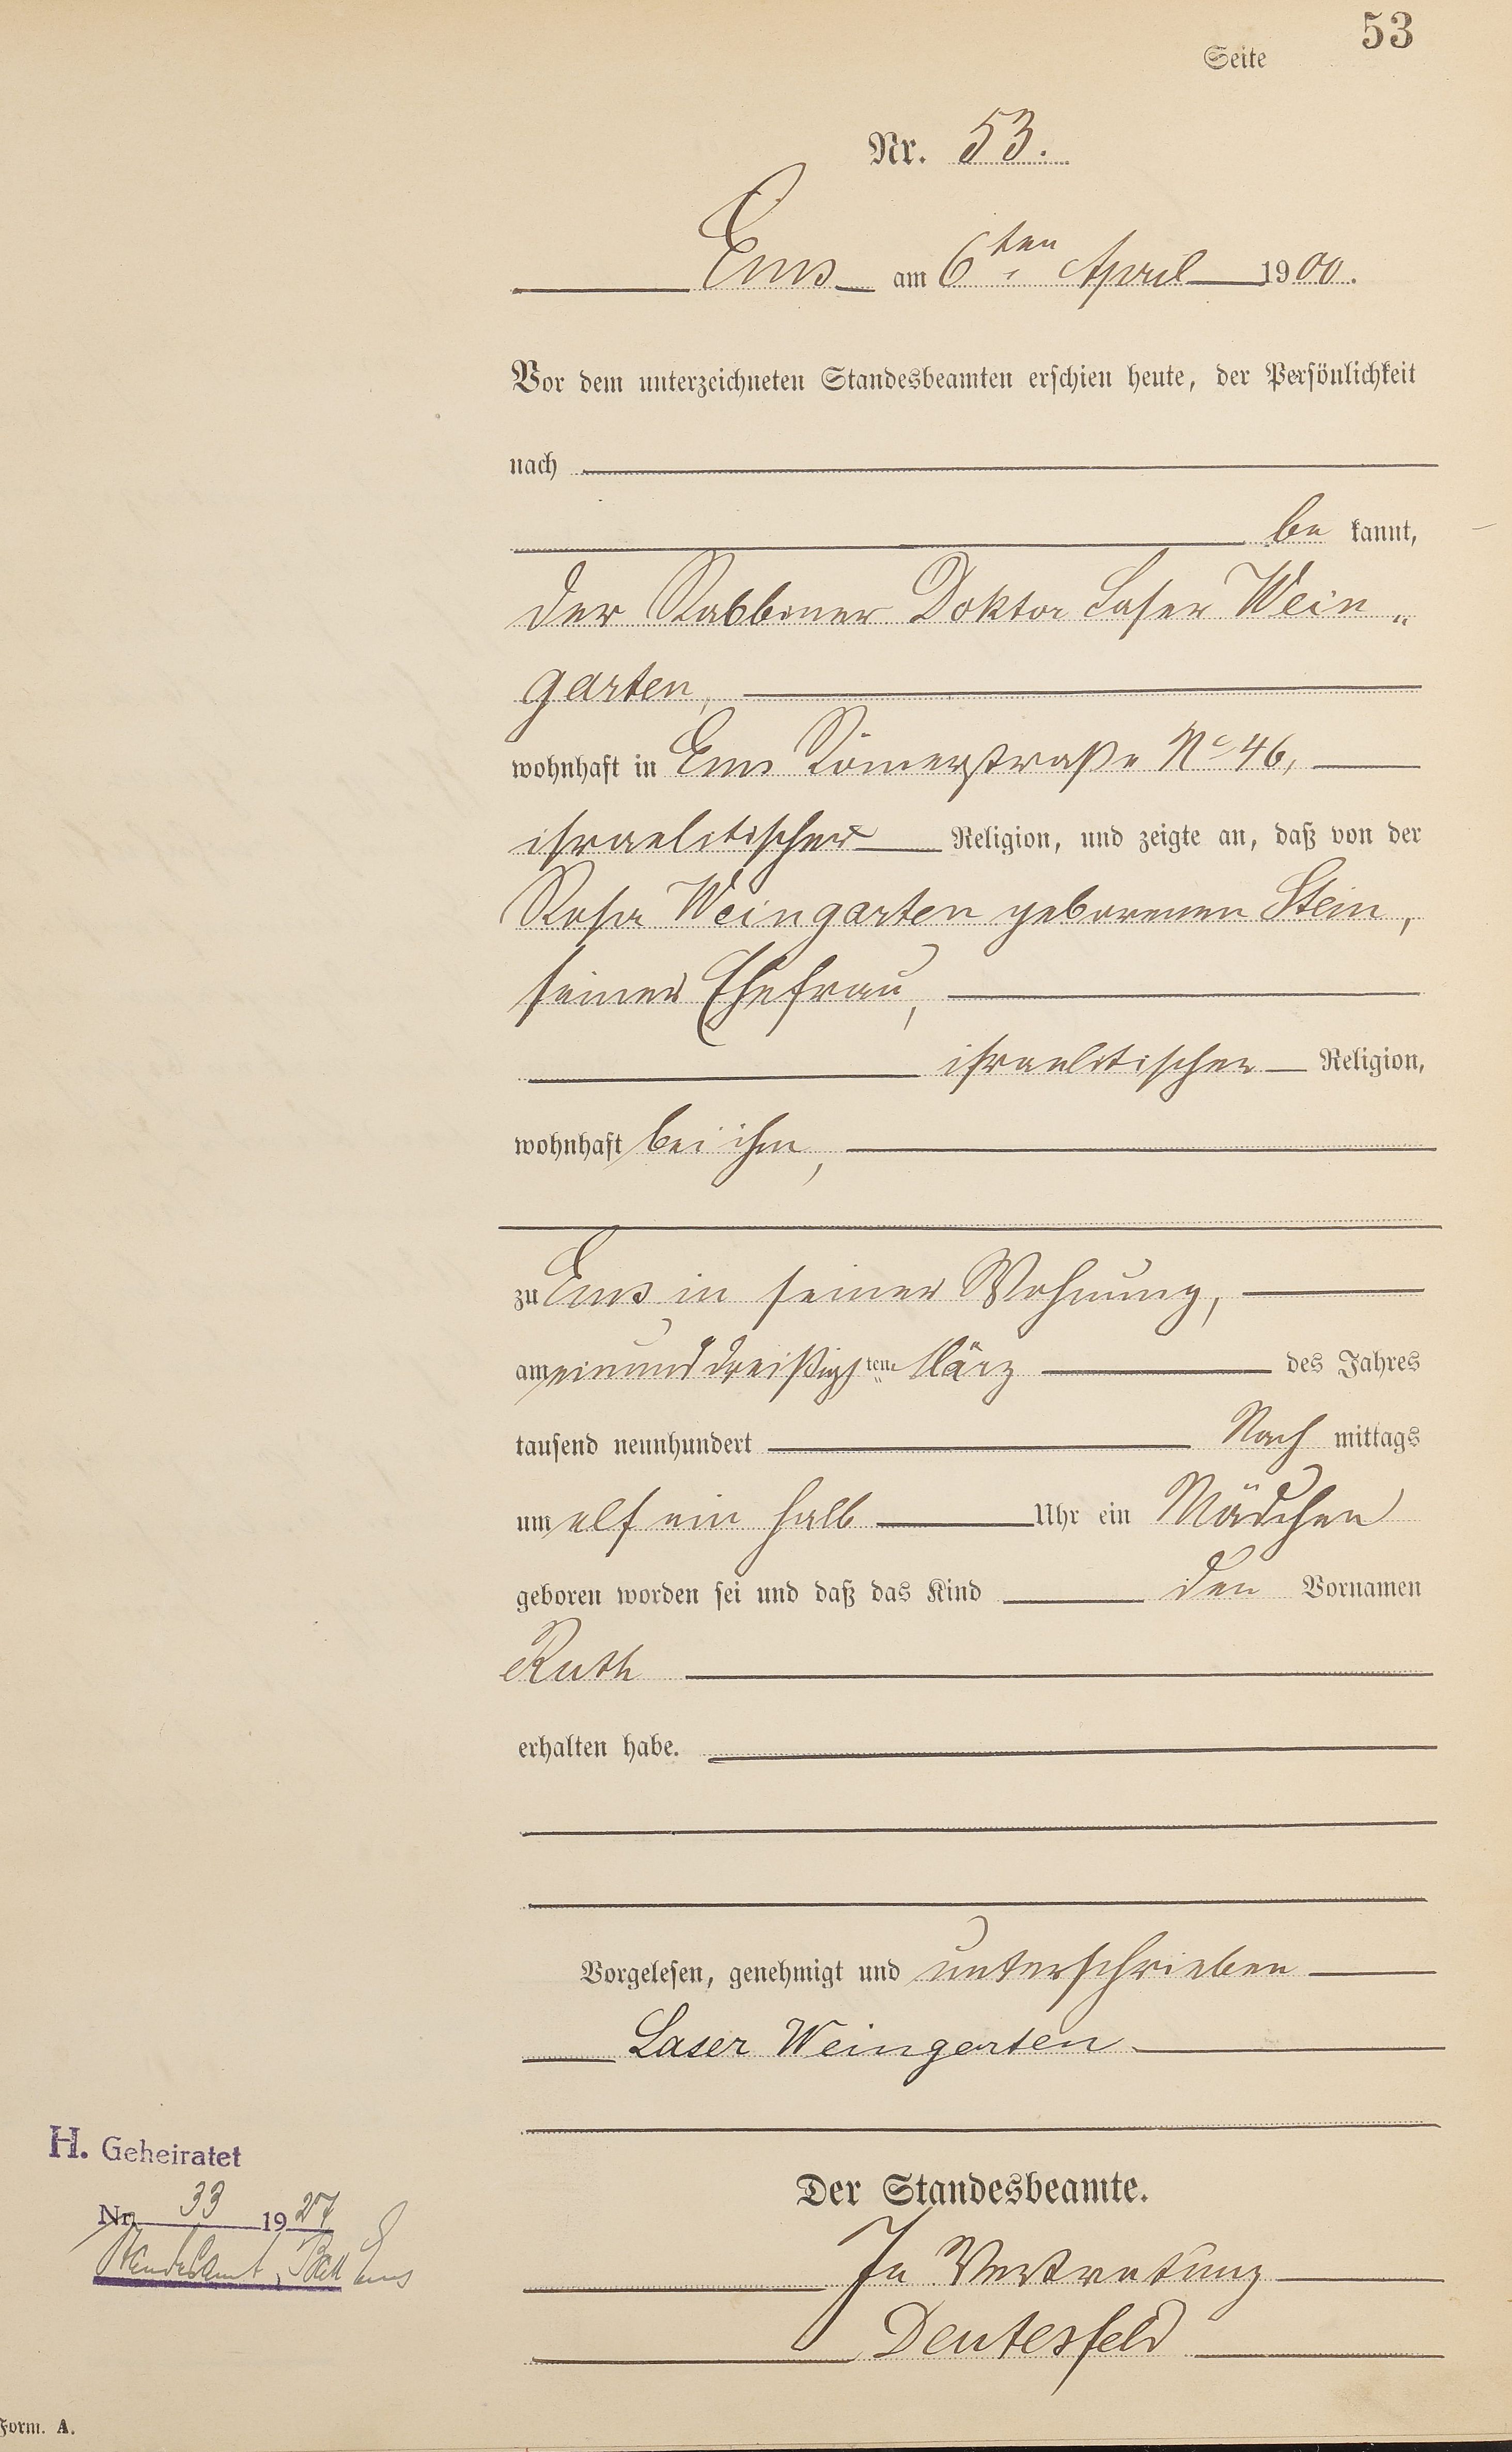 Seite 53
Nr. 53.
Ems am 6ten April 1900.
Vor dem unterzeichneten Standesbeamten erschien heute, der Persönlichkeit
nach
be kannt,
der Rabbiner Doktor Laser Wein„
garten,
wohnhaft in Ems Römerstraße No 46,
israelitischer Religion, und zeigte an, daß von der
Rosa Weingarten geborenen Stein,
seiner Ehefrau,
israelitischer Religion,
wohnhaft bei ihm,
zu Ems in seiner Wohnung,
am einunddreißigsten März des Jahres
tausend neunhundert Nach mittags
um elf ein halb Uhr ein Mädchen
geboren worden sei und daß das Kind den Vornamen
Ruth
erhalten habe.
Vorgelesen, genehmigt und unterschrieben
Laser Weingarten
H. Geheiratet
Nr. 33 1927
Standesamt, Bad Ems
Der Standesbeamte.
In Vertretung
Deutesfeld
Form. A.